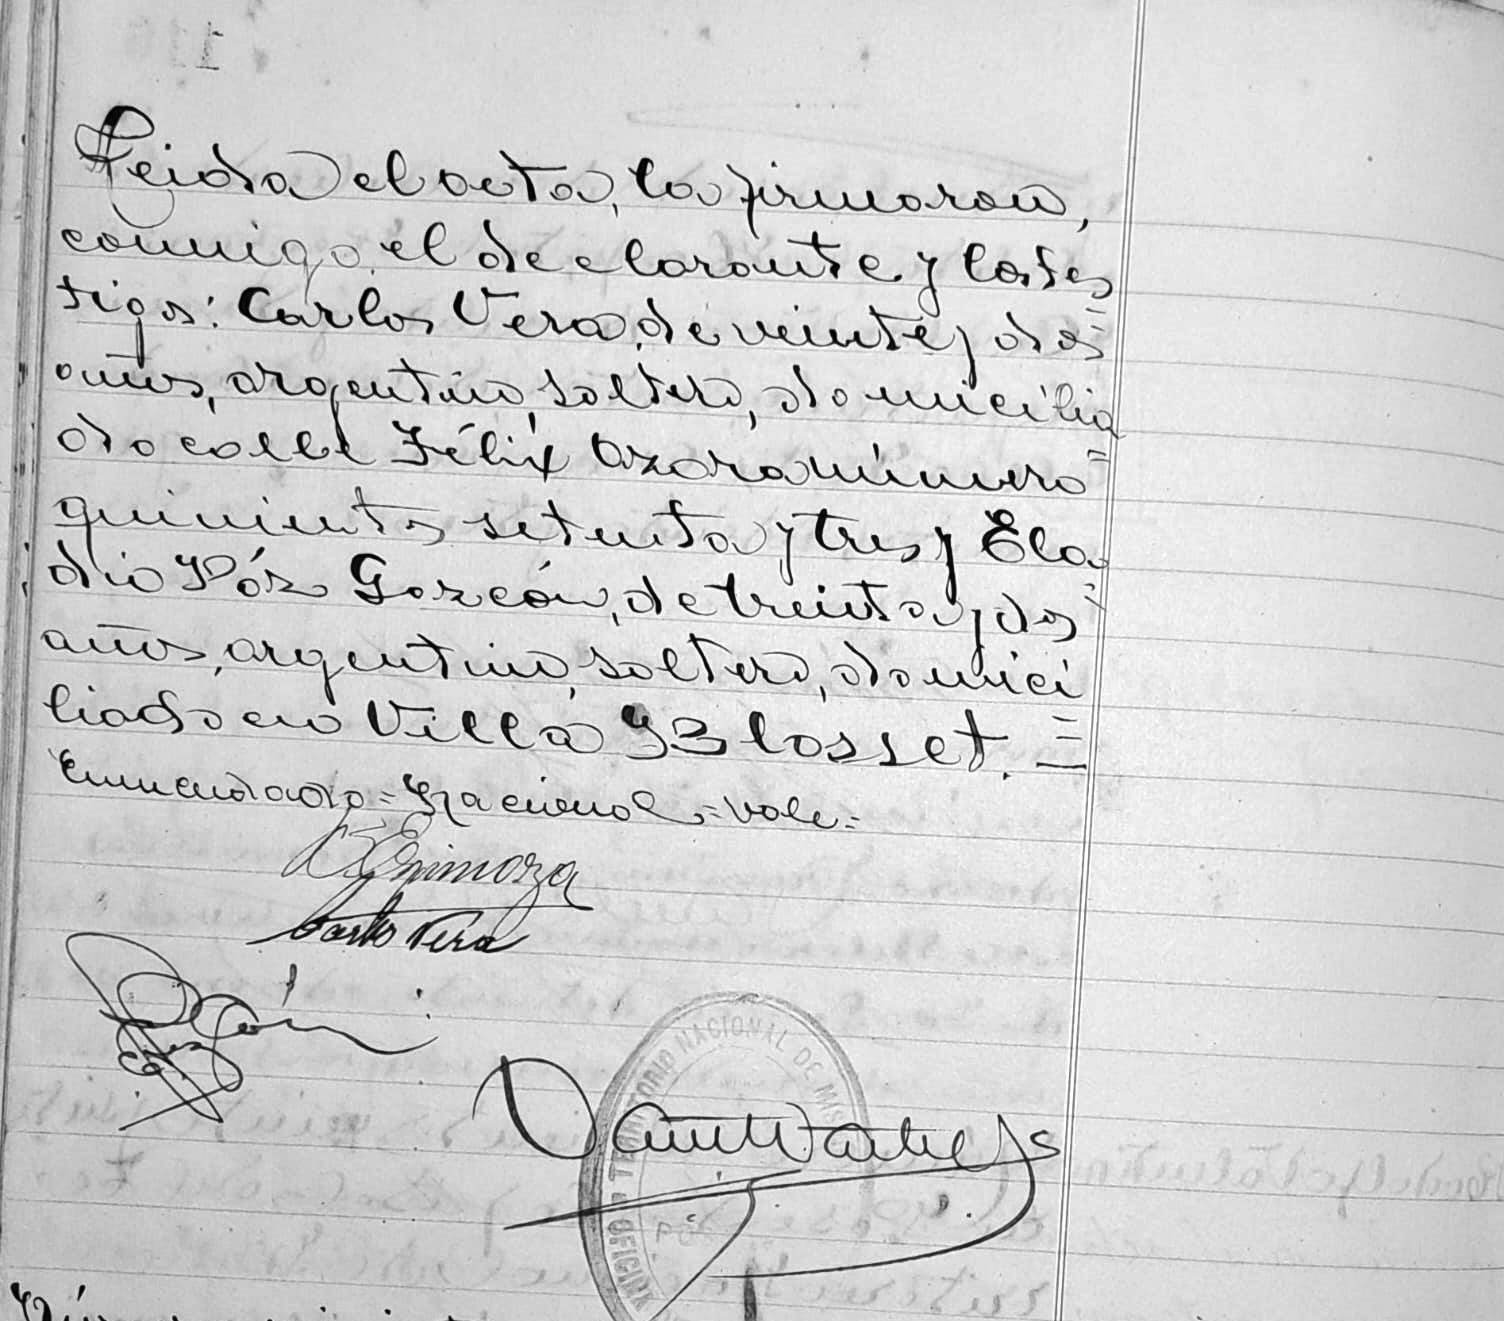 Leida el acta, la firmaron,
conmigo, el declarante y los tes
tigos: Carlos Vera, de veinte y dos =
años, argentino, soltero, domicilia
do calle Félix Azara número =
quinientos setenta y tres y Ela
dio Páz Garzón, de treinta y dos =
años, argentino, soltero, domici
liado en Villa Blosset. =
Enmendado = Nacional = vale =
Espinoza
Carlos Vera
OFICINA TERRITORIO NACIONAL DE MIS